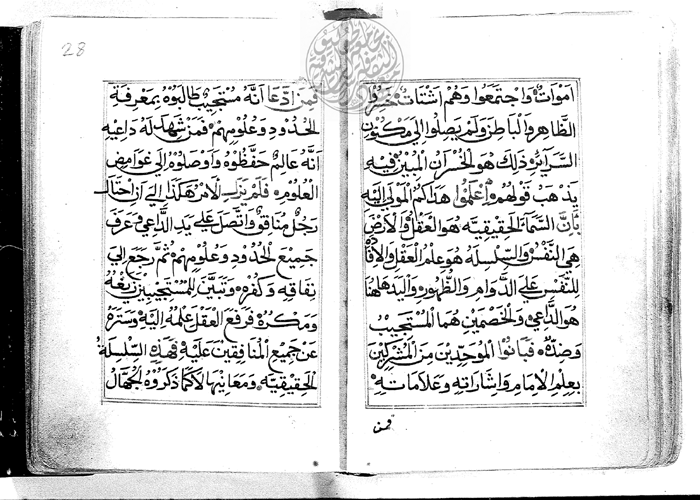 اموات واجتمعوا وهم اشتات خسروا
الظاهر والباطن ولم يصلوا الى مكنون
السرائر وذلك هو الخسران المبين فيه
يذهب قولهم اعلموا هداكم المولى اليه
بان السماء الحقيقيه هو العقل والارض
هي النفس والسلسله هو علم العقل
للنفس على الدوام والظهور واليد هاهنا
هو الداعي والخصمين هما المستجيب
وضده فبانوا الموحدين من المشركين
بعلم الامام واشاراته وعلاماته
فمن
28
فمن ادعا انه مستجيب طالبوه بمعرفة
الحدود وعلومهم فمن شهد له داعيه
انه عالم حفظوه واوصلوه الى غوامض
العلوم فلم يزل الامر هكذا الى ان احتال
رجل منافق واتصل على يد الداعي وعرف
جميع الحدود وعلومهم ثم رجع الى
نفاقه وكفره وتبين للمستجيبين
ومكره فرفع العقل علمه اليه وستره
عن جميع المنافقين عليه فهذه السلسلة
الحقيقيه ومعانيها لا كما ذكروه الجهال